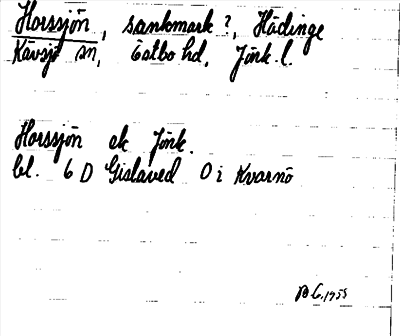 Horssjön, sankmark?, Hädinge
Kävsjö sn, Östbo hd, Jönk. l.
Horssjön ek Jönk.
bl. 6 D Gislaved 0 i Kvarnö
B.G. 1955